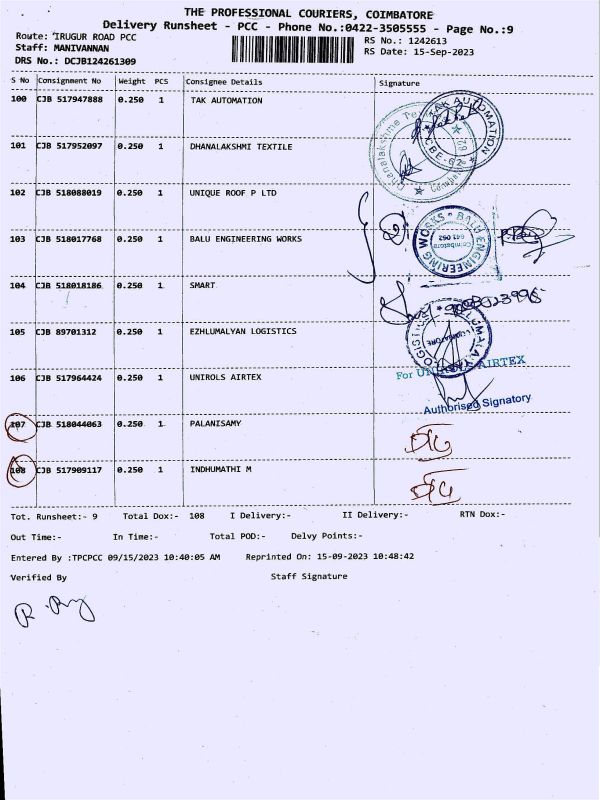 THE PROFESSIONAL COURIERS, COIMBATORE
Delivery Runsheet - PCC - Phone No.:0422-3505555 - Page No.:9
Route: IRUGUR ROAD PCC
RS No.: 1242613
Staff: MANIVANNAN
RS Date: 15-Sep-2023
DRS No.: DCJB124261309
S No Consignment No Weight PCS Consignee Details Signature
100 CJB 517947888 0.250 1 TAK AUTOMATION
TAK AUTOMATION
CBE-62
101 CJB 517952097 0.250 1 DHANALAKSHMI TEXTILE
102 CJB 518088019 0.250 1 UNIQUE ROOF P LTD
103 CJB 518017768 0.250 1 BALU ENGINEERING WORKS
BALU ENGINEERING WORKS
Coimbatore
641 062
104 CJB 518018186 0.250 1 SMART
105 CJB 89701312 0.250 1 EZHLUMALYAN LOGISTICS
106 CJB 517964424 0.250 1 UNIROLS AIRTEX
For UNIROLS AIRTEX
Authorised Signatory
107 CJB 518044063 0.250 1 PALANISAMY
108 CJB 517909117 0.250 1 INDHUMATHI M
Tot. Runsheet:- 9 Total Dox:- 108 I Delivery:- II Delivery:- RTN Dox:-
Out Time:- In Time:- Total POD:- Delvy Points:-
Entered By :TPCPCC 09/15/2023 10:40:05 AM Reprinted On: 15-09-2023 10:48:42
Verified By Staff Signature